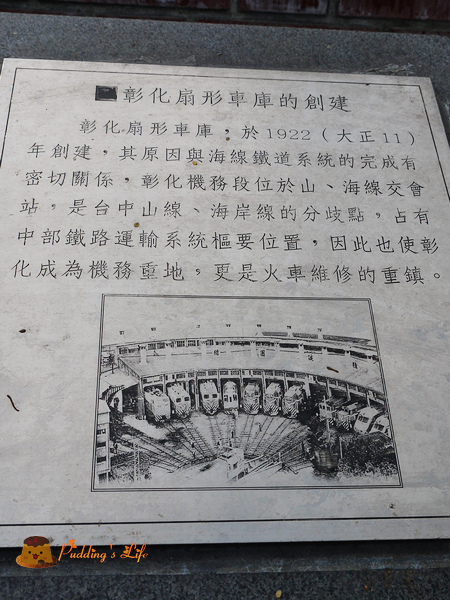 ■彰化扇形車庫的創建
彰化扇形車庫，於1922（大正11）
年創建，其原因與海線鐵道系統的完成有
密切關係，彰化機務段位於山、海線交會
站，是台中山線、海岸線的分歧點，占有
中部鐵路運輸系統樞要位置，因此也使彰
化成為機務重地，更是火車維修的重鎮。
Pudding's Life